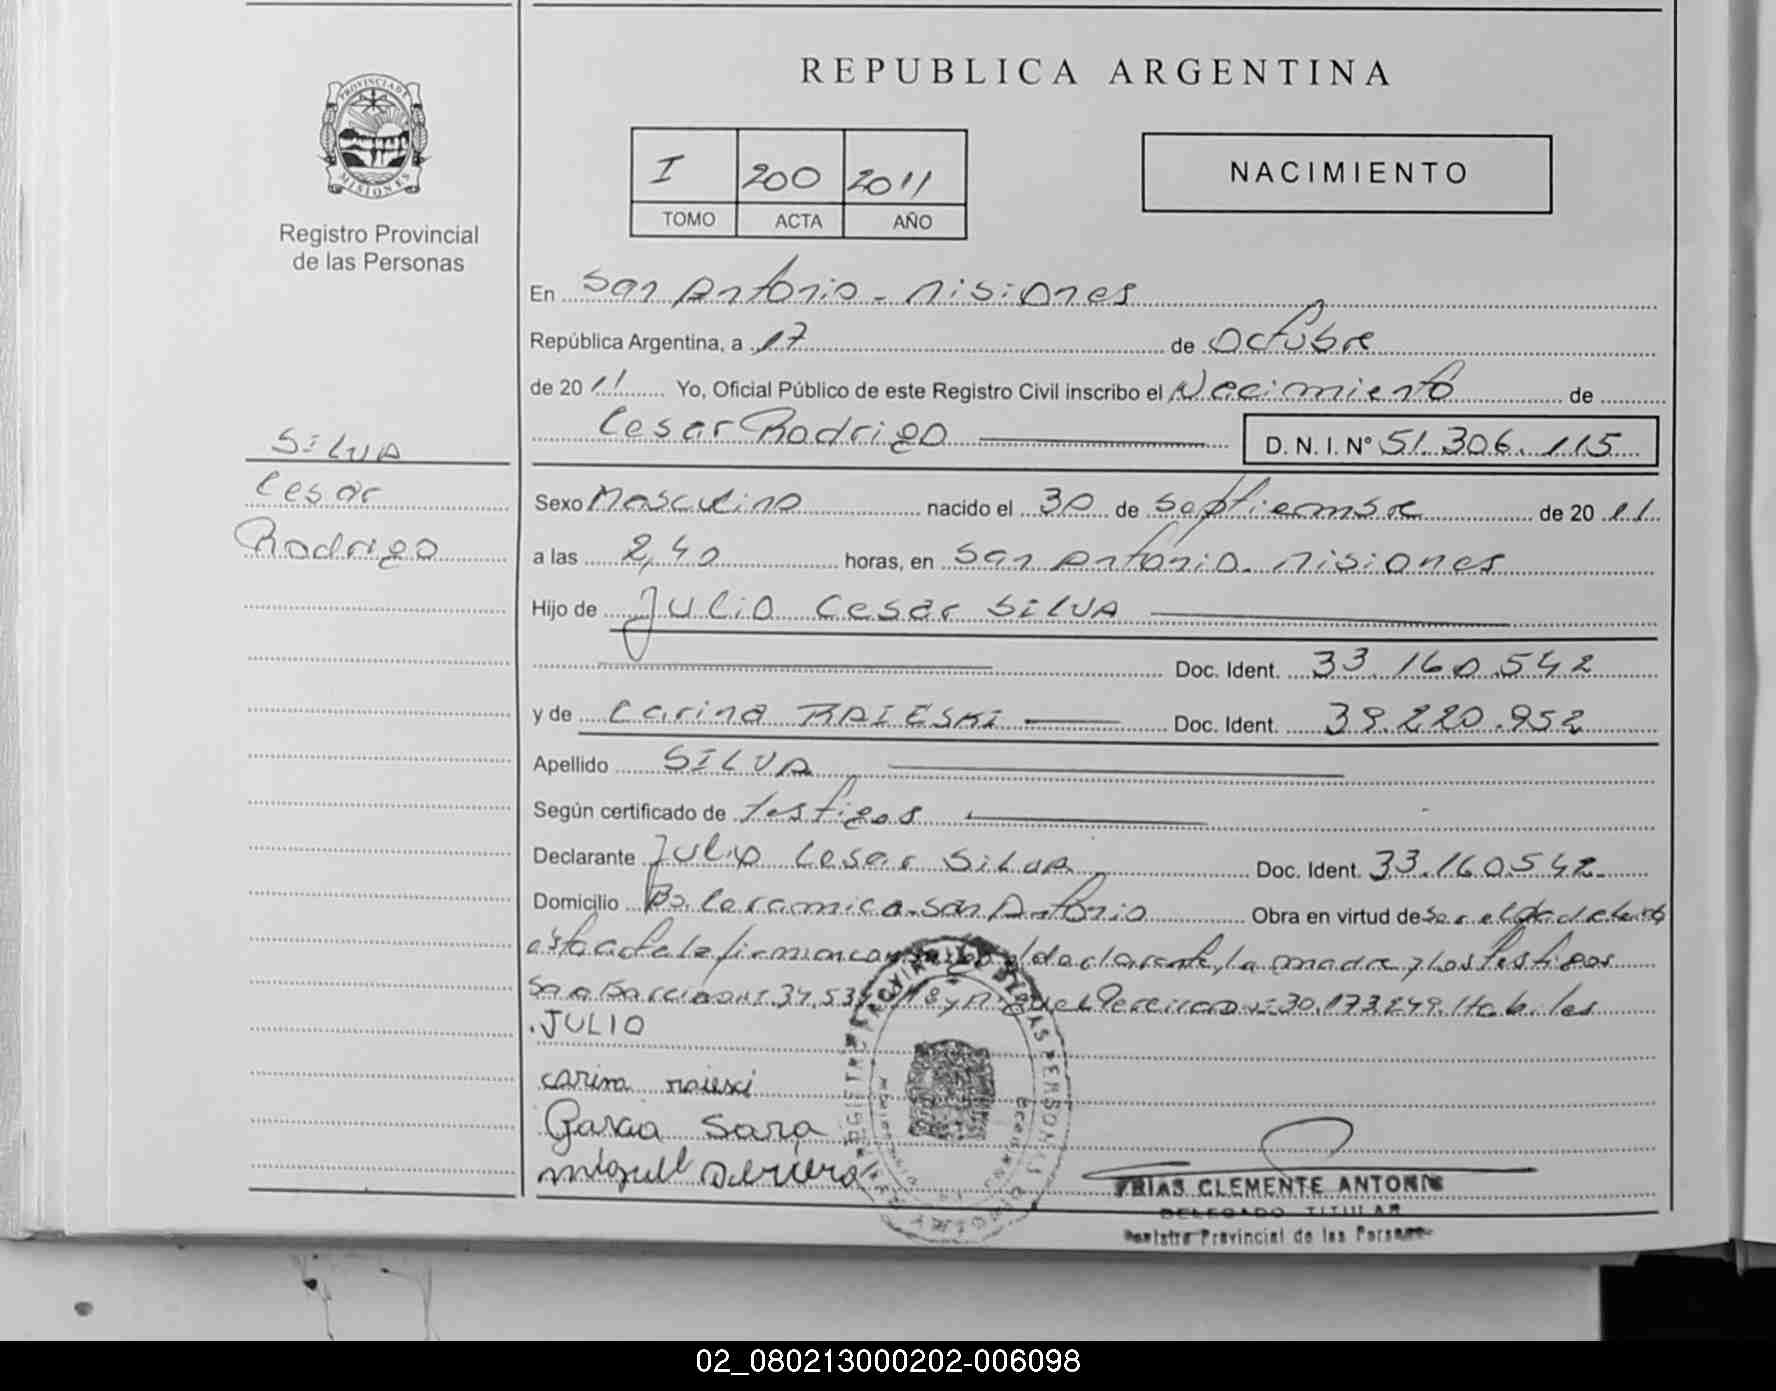 REPUBLICA ARGENTINA
PROVINCIA DE
MISIONES
Registro Provincial
de las Personas
I 200 2011
TOMO ACTA AÑO
NACIMIENTO
En San Antonio - Misiones
República Argentina, a 17 de Octubre
de 2011 Yo, Oficial Público de este Registro Civil inscribo el Nacimiento de
Cesar Rodrigo D. N. I. Nº 51.306.115
SILVA
Cesar
Rodrigo
Sexo Masculino nacido el 30 de Septiembre de 2011
a las 2,40 horas, en San Antonio - Misiones
Hijo de Julio Cesar SILVA
Doc. Ident. 33.160.542
y de Carina RAIESKI Doc. Ident. 39.220.952
Apellido SILVA
Según certificado de testigos
Declarante Julio Cesar Silva Doc. Ident. 33.160.542
Domicilio Bo. Ceramica - San Antonio Obra en virtud de ser el padre
esta acta la firman el declarante, la madre y los testigos
Sara 30.173.249. Habiles
JULIO
carina raiesci
Garcia Sara
miguel
FRIAS CLEMENTE ANTONIO
DELEGADO TITULAR
Registro Provincial de las Personas
02_080213000202-006098